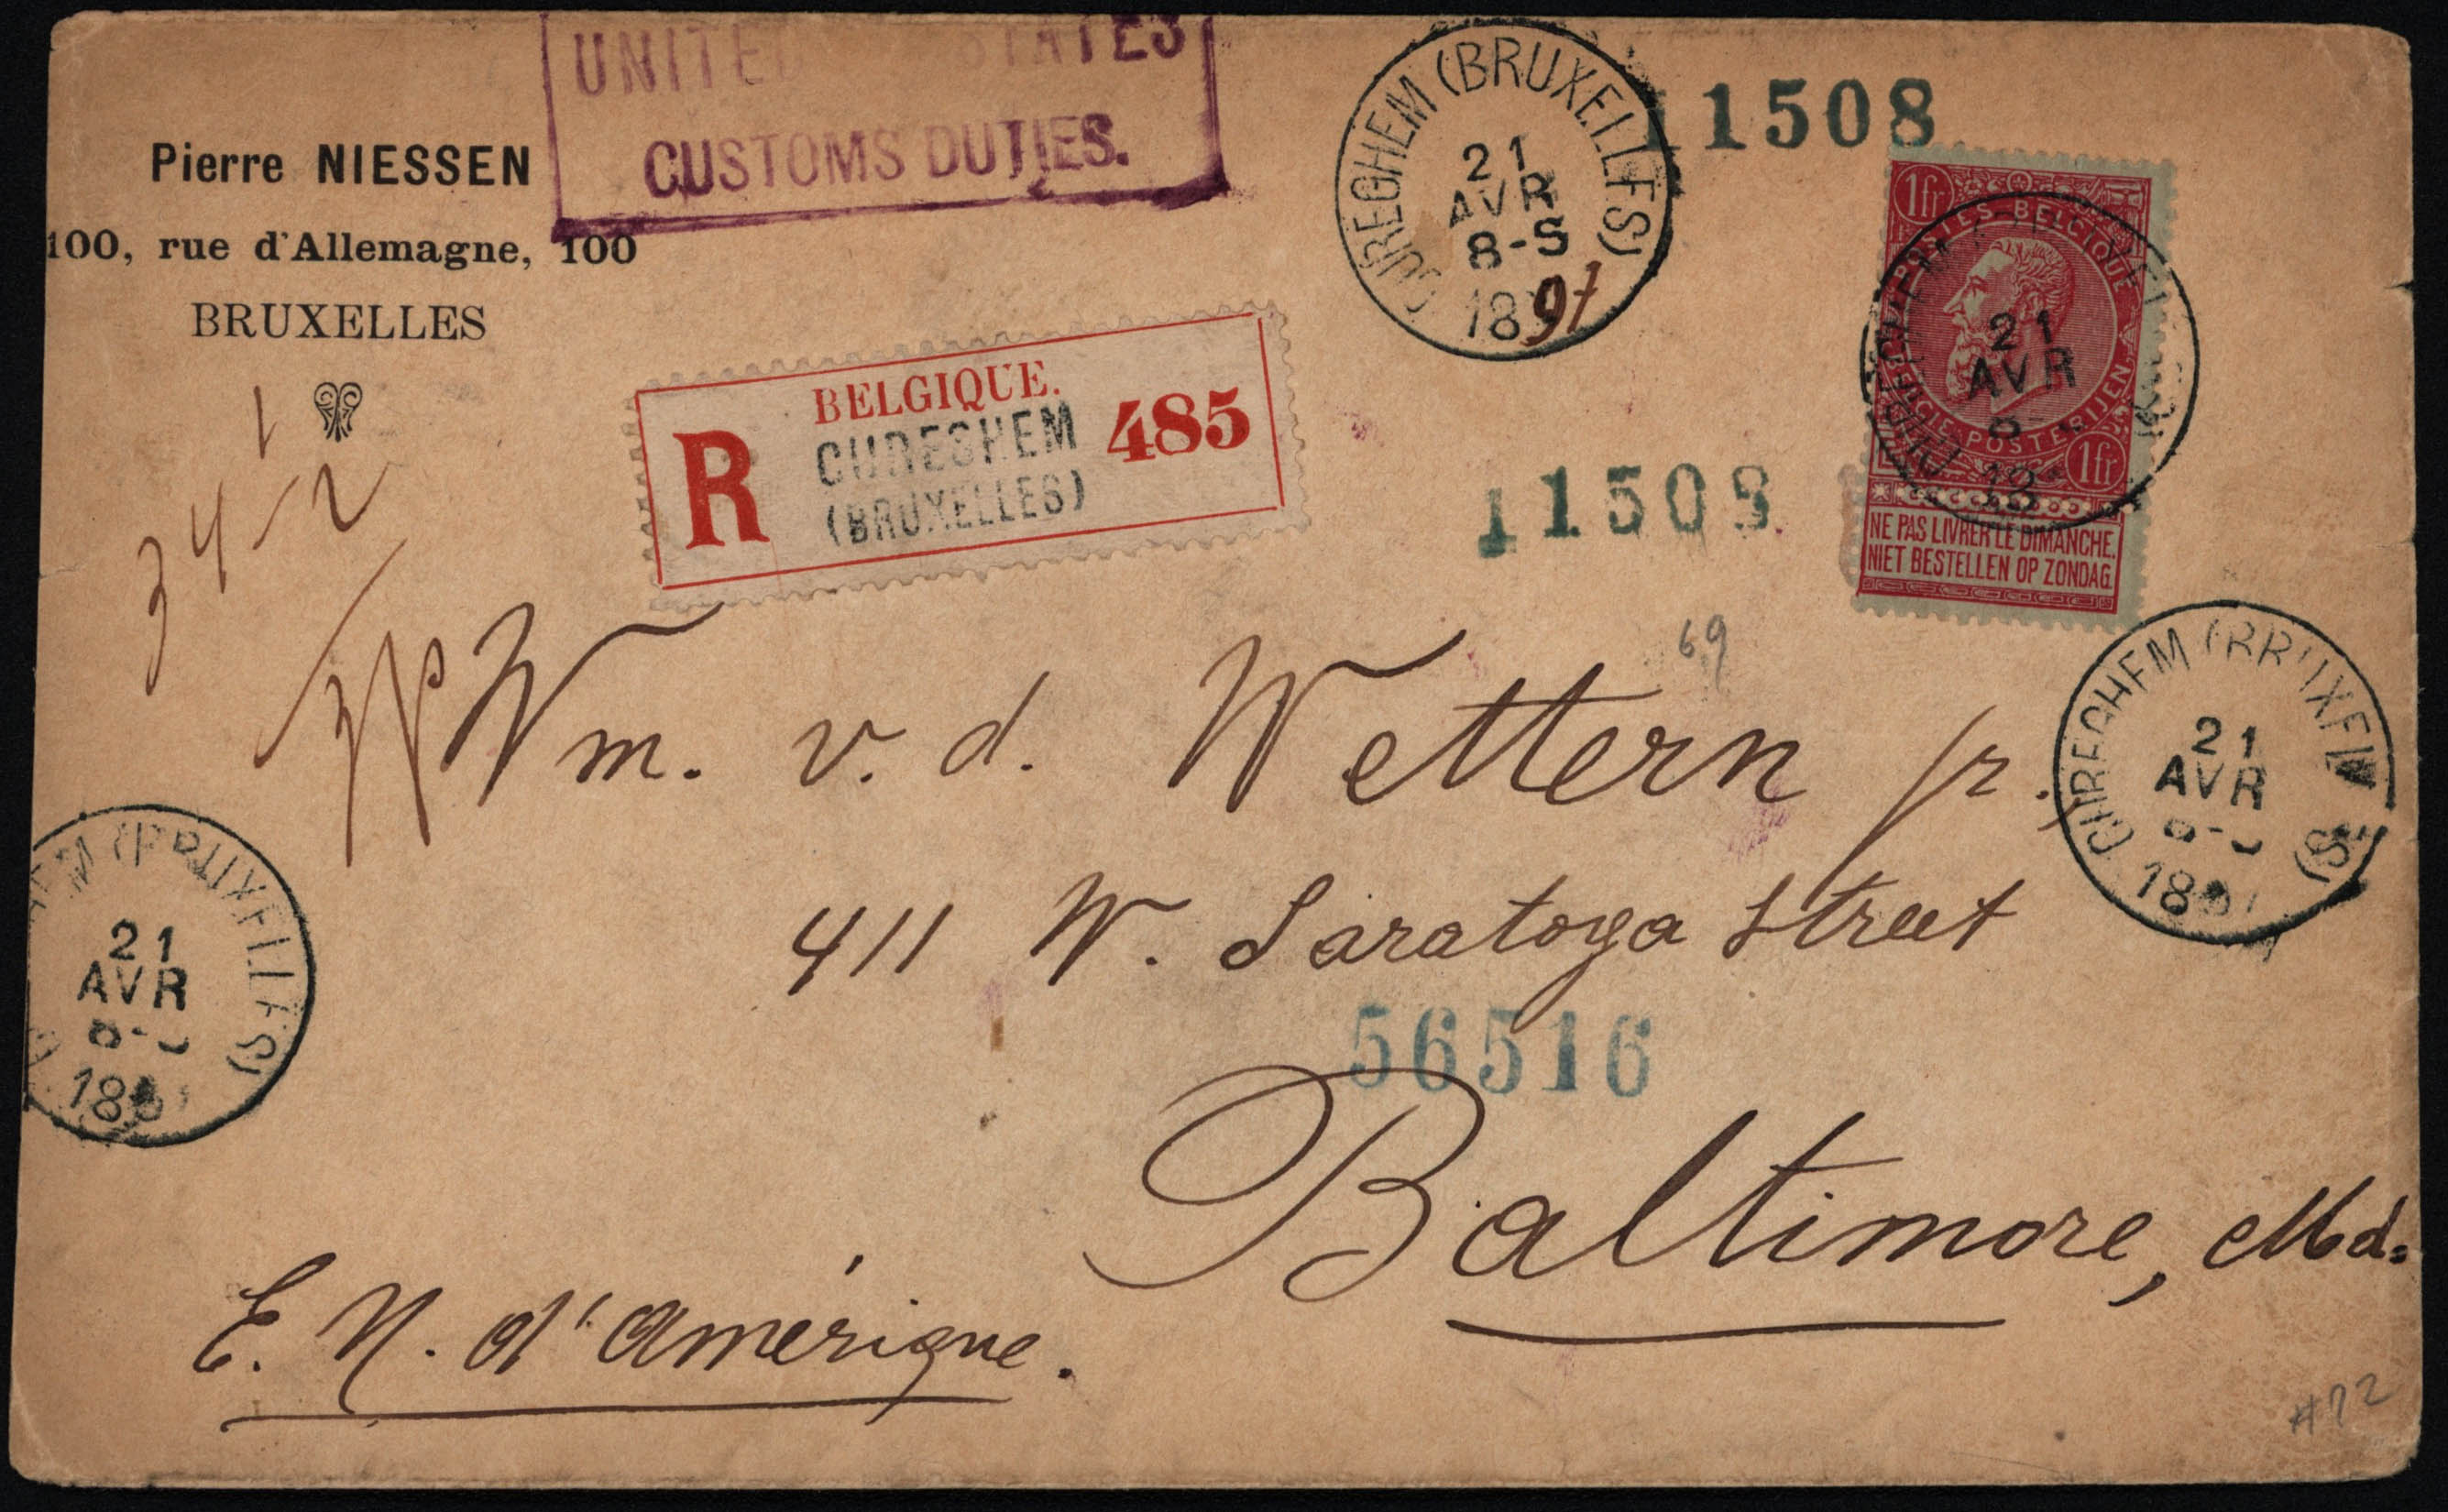 UNITED STATES
CUSTOMS DUTIES.
Pierre NIESSEN
100, rue d'Allemagne, 100
BRUXELLES
CUREGHEM (BRUXELLES)
21
AVR
8-S
1897
11508
1fr
POSTES-BELGIQUE
BELGIE-POSTERIJEN
1fr
NE PAS LIVRER LE DIMANCHE.
NIET BESTELLEN OP ZONDAG.
21
AVR
18
BELGIQUE.
R
CUREGHEM
(BRUXELLES)
485
11508
1
34-2
69
Wm. v. d. Wettern jr.
411 W. Saratoga Street
56516
Baltimore, Md.
E. N. d'Amérique.
CUREGHEM (BRUXELLES)
21
AVR
18
(BRUXELLES)
21
AVR
18
#72